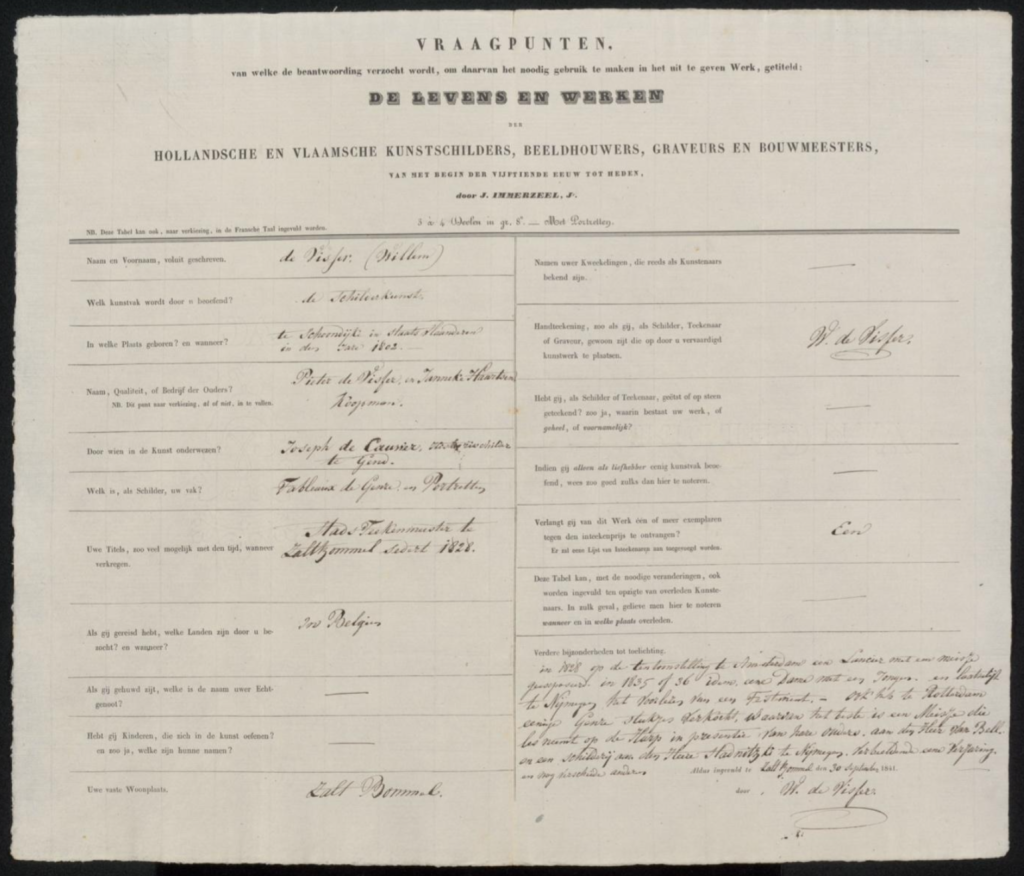 VRAAGPUNTEN,
van welke de beantwoording verzocht wordt, om daarvan het noodig gebruik te maken in het uit te geven Werk, getiteld:
DE LEVENS EN WERKEN
DER
HOLLANDSCHE EN VLAAMSCHE KUNSTSCHILDERS, BEELDHOUWERS, GRAVEURS EN BOUWMEESTERS,
VAN HET BEGIN DER VIJFTIENDE EEUW TOT HEDEN,
door J. IMMERZEEL, Jr.
3 à 4 Deelen in gr. 8o. — Met Portretten.
NB. Deze Tabel kan ook, naar verkiezing, in de Fransche Taal ingevuld worden.
Naam en Voornaam, voluit geschreven.
de Visser. (Willem)
Welk kunstvak wordt door u beoefend?
de Schilderkunst.
In welke Plaats geboren? en wanneer?
te Schoondijke in staats Vlaanderen
in den Jare 1802.
Naam, Qualiteit, of Bedrijf der Ouders?
NB. Dit punt naar verkiezing, al of niet, in te vullen.
Pieter de Visser, en Janneke
Koopman.
Door wien in de Kunst onderwezen?
Joseph de Cauwer,
te Gend.
Welk is, als Schilder, uw vak?
Tableaux de Genre en Portretten
Uwe Titels, zoo veel mogelijk met den tijd, wanneer
verkregen.
Stads Teekenmeester te
Zaltbommel sedert 1828.
Als gij gereisd hebt, welke Landen zijn door u be-
zocht? en wanneer?
Belgien
Als gij gehuwd zijt, welke is de naam uwer Echt-
genoot?
—
Hebt gij Kinderen, die zich in de kunst oefenen?
en zoo ja, welke zijn hunne namen?
—
Uwe vaste Woonplaats.
Zalt Bommel.
Namen uwer Kweekelingen, die reeds als Kunstenaars
bekend zijn.
—
Handteekening, zoo als gij, als Schilder, Teekenaar
of Graveur, gewoon zijt die op door u vervaardigd
kunstwerk te plaatsen.
W. de Visser.
Hebt gij, als Schilder of Teekenaar, geëtst of op steen
geteekend? zoo ja, waarin bestaat uw werk, of
geheel, of voornamelijk?
—
Indien gij alleen als liefhebber eenig kunstvak beoe-
fend, wees zoo goed zulks dan hier te noteren.
—
Verlangt gij van dit Werk één of meer exemplaren
tegen den inteekenprijs te ontvangen?
Er zal eene Lijst van Inteekenaren aan toegevoegd worden.
Een
Deze Tabel kan, met de noodige veranderingen, ook
worden ingevuld ten opzigte van overleden Kunste-
naars. In zulk geval, gelieve men hier te noteren
wanneer en in welke plaats overleden.
—
Verdere bijzonderheden tot toelichting.
in 1828 op de tentoonstelling te Amsterdam een Lancier met een meisje
geexposeerd. in 1835 of 36 idem, eene Dame met een Jongen. en laatstelijk
te Nijmegen het voorlezen van een Testament. — te Rotterdam
eenige Genre stukjes verkocht, waarvan het beste is een Meisje die
les neemt op de Harp in presentie van hare ouders, aan den Heer van Bell
en een schilderij aan den Heere te Nijmegen, verbeeldende eene Verjaring
en nog verscheide andere
Aldus ingevuld te Zalt Bommel den 30 September 1841.
door W. de Visser.